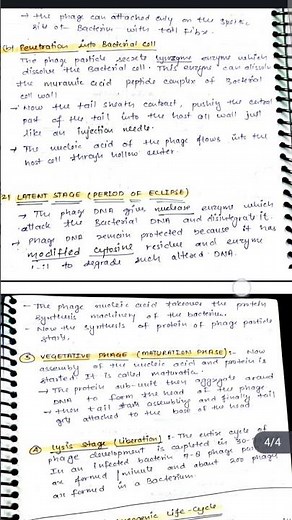 → the phage can attached only on the specific
site of Bacterium with tail fibre.
(b) Penetration into Bacterial cell
The phage particle secrets lysozyme enzyme which
dissolve the Bacterial cell. This enzyme can dissolve
the muramic acid peptide complex of Bacterial
cell wall
→ Now the tail sheath contract, pushing the central
part of the tail into the host cell wall just
like an injection needle.
→ The nucleic acid of the phage flows into the
host cell through hollow center.
2) LATENT STAGE (PERIOD OF ECLIPSE)
→ The phage DNA give nuclease enzyme which
attack the Bacterial DNA and disintegrate it.
→ Phage DNA remain protected because it has
modified cytosine residue and enzyme
to degrade such altered DNA.
→ The phage nucleic acid takeover the protein
synthesis machinery of the bacterium.
→ Now the synthesis of protein of phage particle
starts.
③ VEGETATIVE PHASE (MATURATION PHASE) :- Now
assembly of the nucleic acid and protein is
started. It is called maturation.
→ The protein sub-unit they aggregate around
DNA to form the head of the phage
→ then tail start assembling and finally tail
gets attached to the base of the head
④ Lysis Stage (Liberation) :- The entire cycle of
phage development is completed in 30-
In an infected bacterium 7-8 phage
are formed / minute and about 200 phage
are formed in a Bacterium.
4/4
Life-cycle